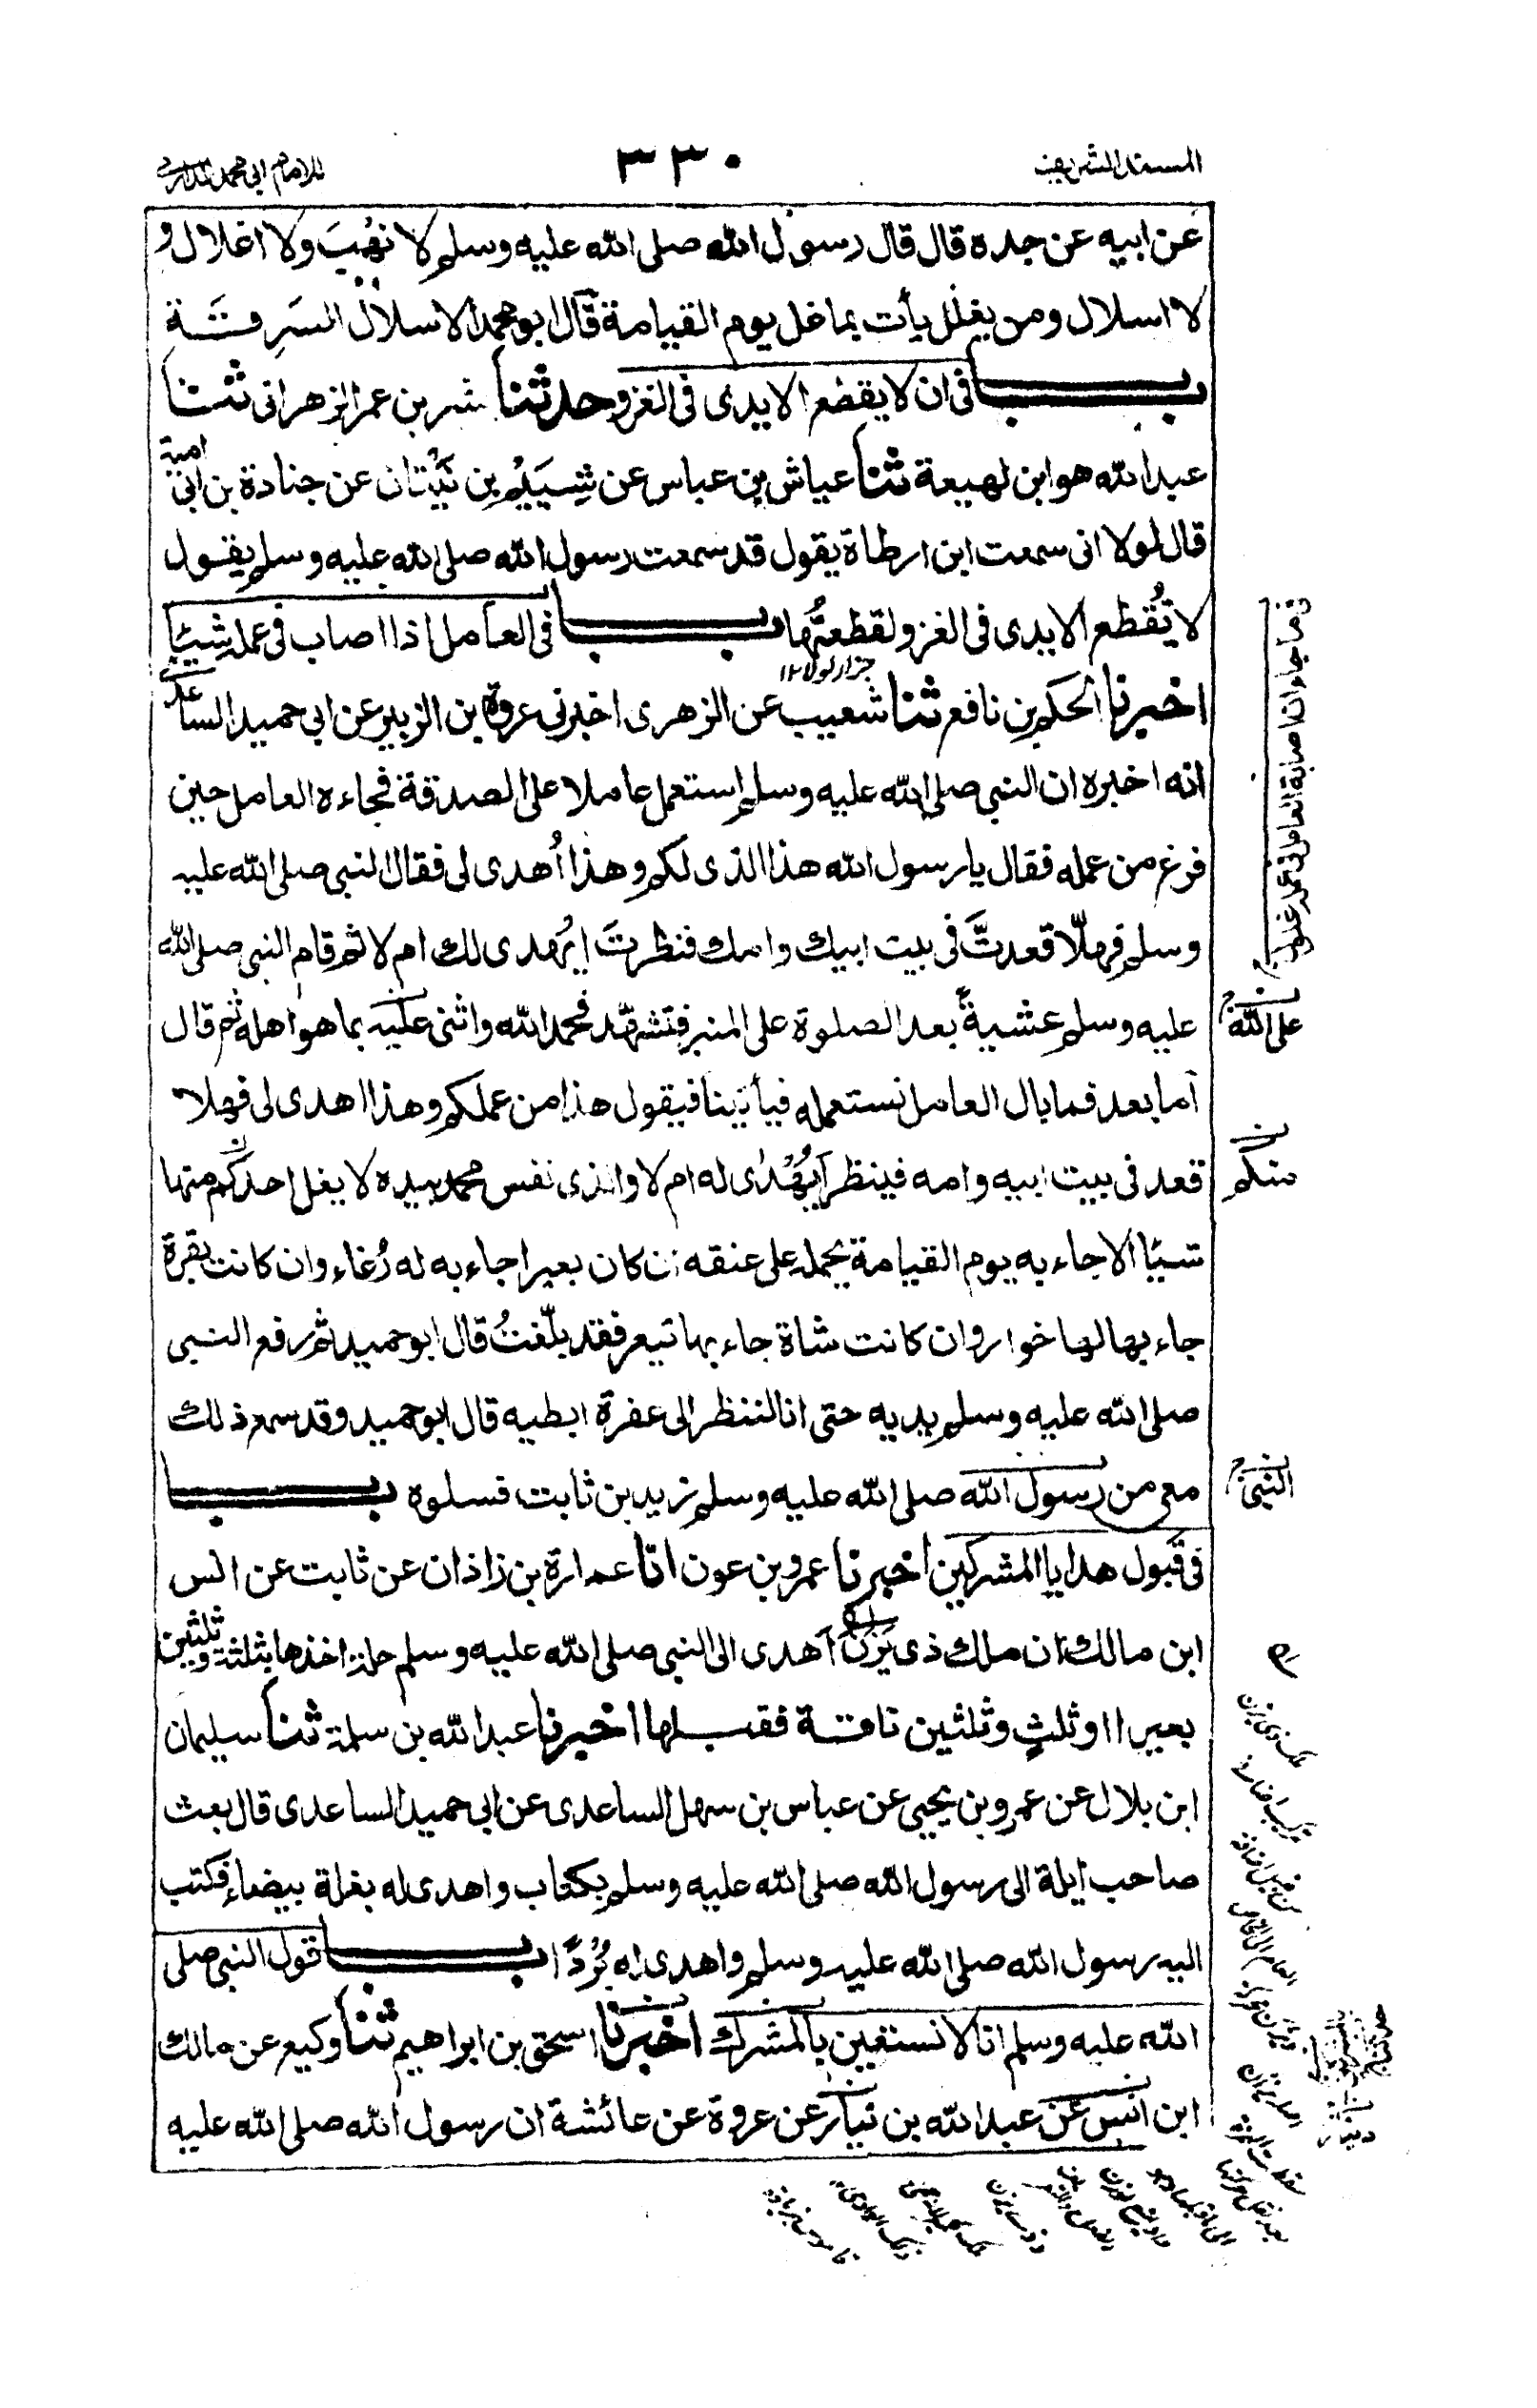 المسند الشريف
٣٣٠
للامام ابى محمد الدارمى
عن ابيه عن جده قال قال رسول الله صلى الله عليه وسلم لا نهب ولا اغلال و
لا اسلال ومن يغلل يأت بما غل يوم القيامة قال ابو محمد الاسلال السَرِقَة
باب فى ان لا يقطع الايدى فى الغزو حدثنا بشر بن عمر الزهرانى ثنا
عبد الله هو ابن لهيعة ثنا عياش بن عباس عن شِيَيْم بن بَيْتان عن جنادة بن ابى امية
قال لولا انى سمعت ابن ارطاة يقول قد سمعت رسول الله صلى الله عليه وسلم يقول
لا تُقطع الايدى فى الغزو لقطعتُها باب فى العامل اذا اصاب فى عمله شيئا
جزاء لولا ١٢
اخبرنا الحكم بن نافع ثنا شعيب عن الزهرى اخبرنى عروة بن الزبير عن ابى حميد الساعدى
انه اخبره ان النبى صلى الله عليه وسلم استعمل عاملا على الصدقة فجاءه العامل حين
فرغ من عمله فقال يا رسول الله هذا الذى لكم وهذا اُهدى لى فقال النبى صلى الله عليه
وسلم فهلّا قعدتَّ فى بيت ابيك وامك فنظرتَ ايُهدى لك ام لا ثم قام النبى صلى الله
عليه وسلم عشيةً بعد الصلوة على المنبر فتشهّد فحمد الله واثنى عليه بما هو اهله ثم قال
اما بعد فما بال العامل نستعمله فيأتينا فيقول هذا من عملكم وهذا اهدى لى فهلا
قعد فى بيت ابيه وامه فينظر أيُهْدٰى له ام لا والذى نفس محمد بيده لا يغل احدكم منها
شيئا الا جاء به يوم القيامة يحمله على عنقه ان كان بعيرا جاء به له رُغاء وان كانت بقرة
جاء بها لها خوار وان كانت شاة جاء بها تيعر فقد بلّغتُ قال ابو حميد ثم رفع النبى
صلى الله عليه وسلم يديه حتى انا لننظر الى عفرة ابطيه قال ابو حميد وقد سمع ذلك
معى من رسول الله صلى الله عليه وسلم زيد بن ثابت فسلوه باب
فى قبول هدايا المشركين اخبرنا عمرو بن عون انا عمارة بن زاذان عن ثابت عن انس
ابن مالك ان ملك ذى يَزَن اَهدى الى النبى صلى الله عليه وسلم حلة اخذها بثلثة وثلثين
بعيرا او ثلثٍ وثلثين ناقة فقبلها اخبرنا عبد الله بن سلمة ثنا سليمان
ابن بلال عن عمرو بن يحيى عن عباس بن سهل الساعدى عن ابى حميد الساعدى قال بعث
صاحب ايلة الى رسول الله صلى الله عليه وسلم بكتاب واهدى له بغلة بيضاء فكتب
اليه رسول الله صلى الله عليه وسلم واهدى له بُرْدًا باب قول النبى صلى
الله عليه وسلم انا لا نستعين بالمشرك اخبرنا اسحق بن ابراهيم ثنا وكيع عن مالك
ابن انس عن عبد الله بن نيار عن عروة عن عائشة ان رسول الله صلى الله عليه
على الله
منكم
النبى
دينار